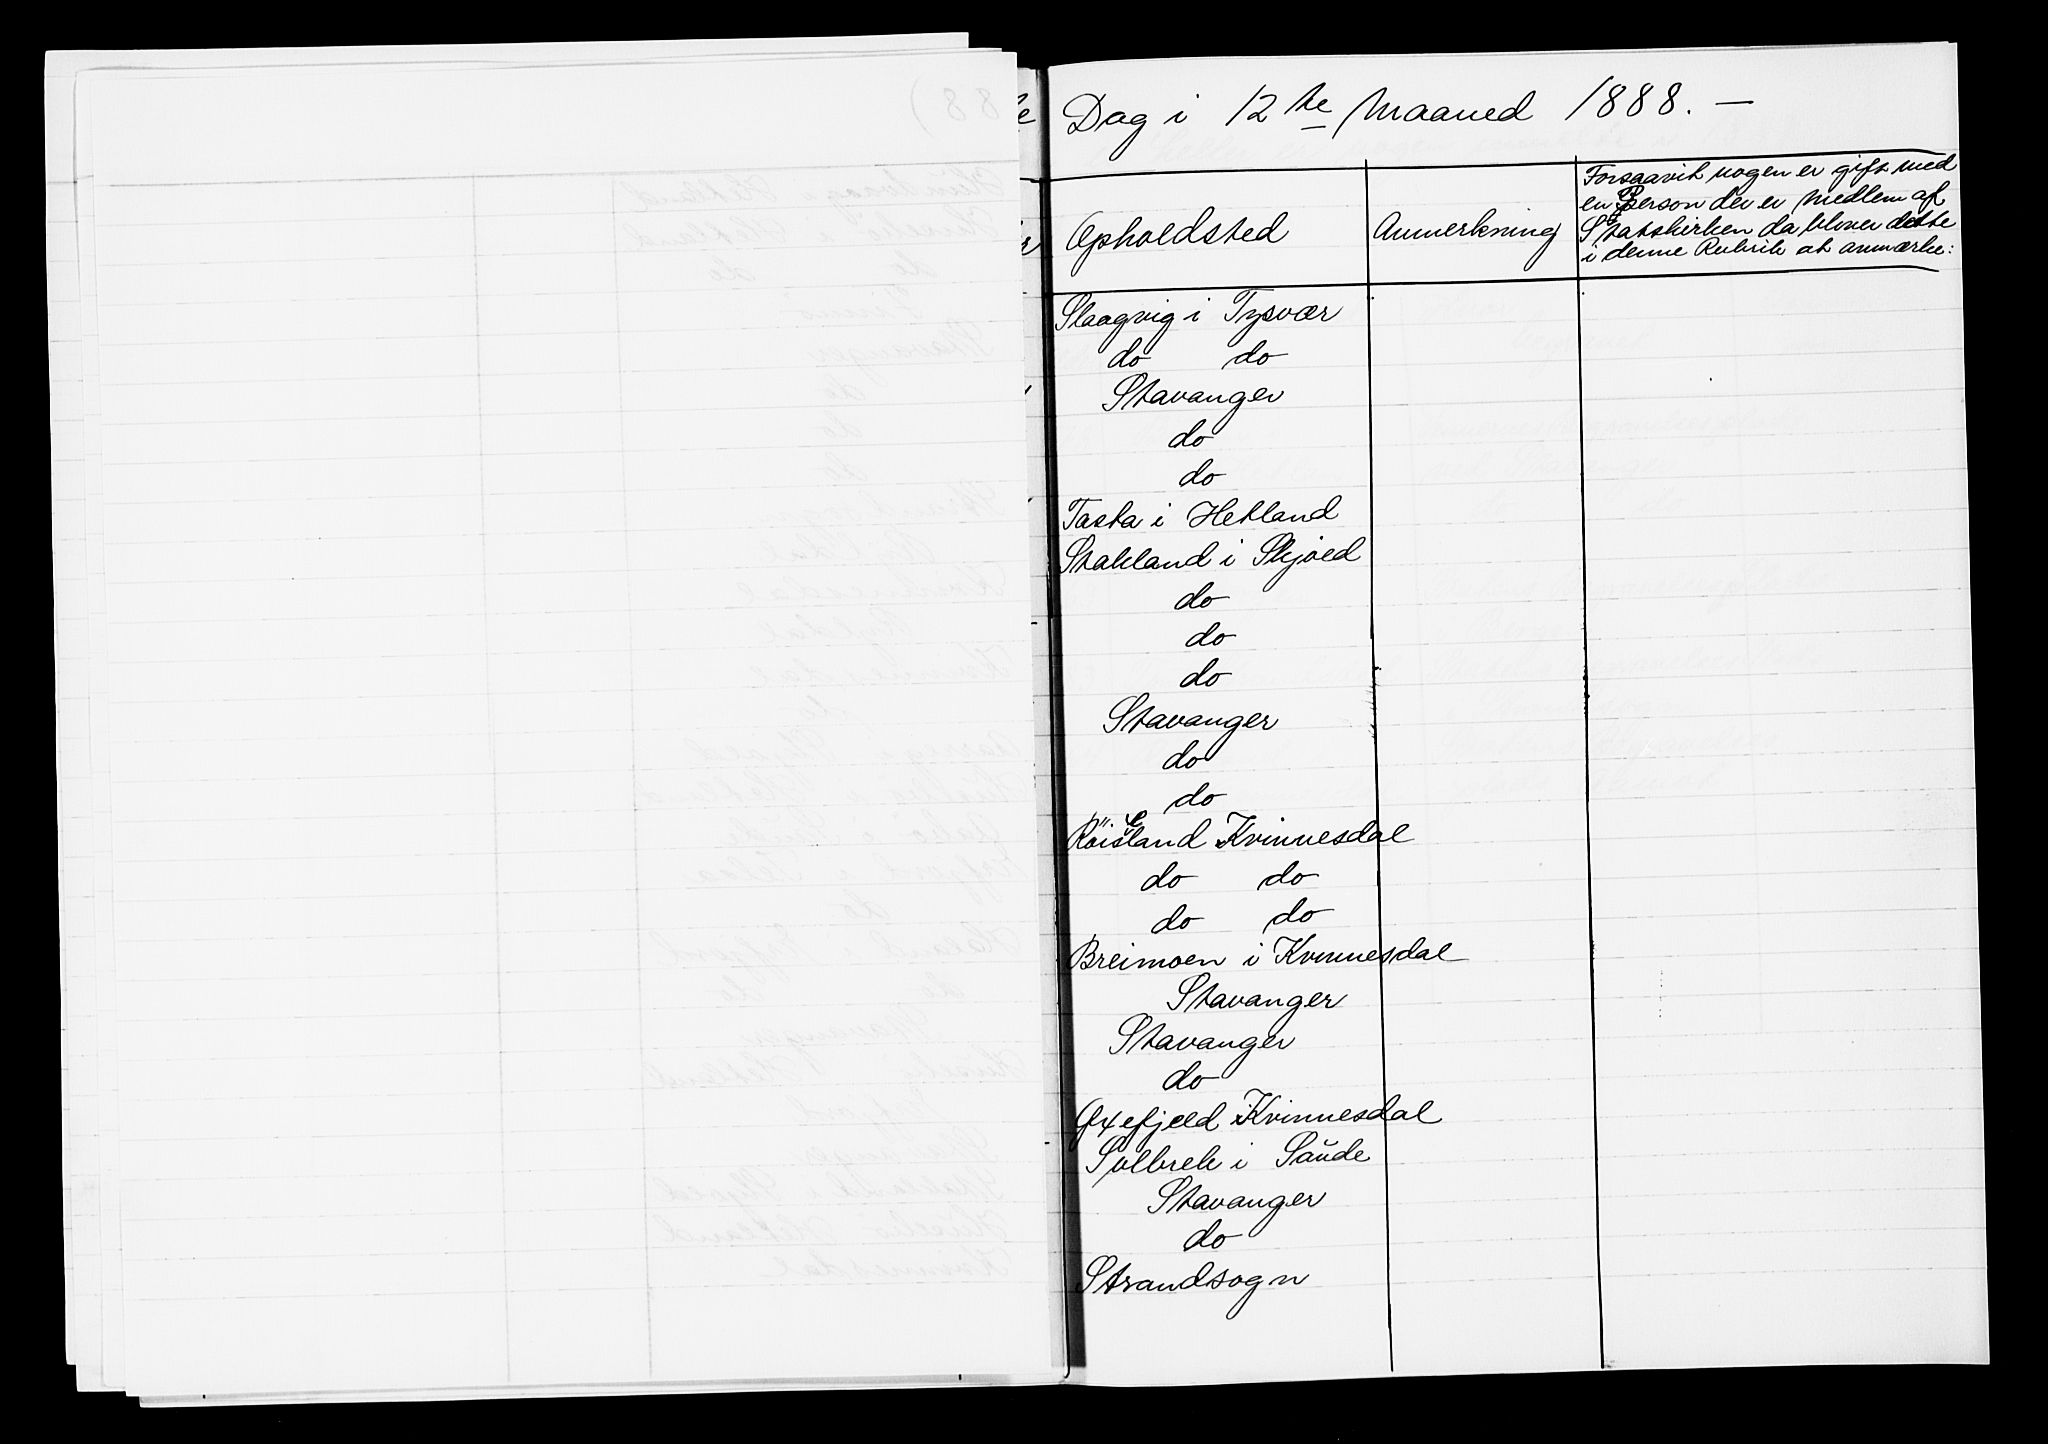 Dag i 12te Maaned 1888. —
Opholdsted
Anmerkning
Forsaavit nogen er gift med
en Person der er medlem af
Statskirken da bliver dette
i denne Rubrik at anmærke:
Slaagvig i Tysvær
do do
Stavanger
do
do
Tasta i Hetland
Stakland i Skjold
do
do
do
Stavanger
do
do
Röisland i Kvinnesdal
do do
do do
Breimoen i Kvinnesdal
Stavanger
Stavanger
do
Oxefjeld i Kvinnesdal
Solbrek i Saude
Stavanger
do
Strandsogn